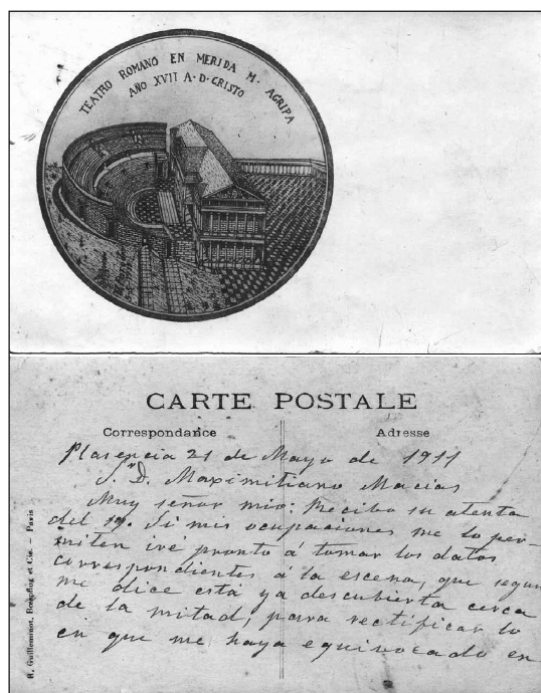 TEATRO ROMANO EN MERIDA M. AGRIPA
AÑO XVII A. D. CRISTO
CARTE POSTALE
Correspondance
Adresse
Plasencia 21 de Mayo de 1911
S. D. Maximiliano Macias
Muy señor mio: Recibo su atenta
del 19. Si mis ocupaciones me lo per-
miten iré pronto á tomar los datos
correspondientes á la escena, que segun
me dice está ya descubierta cerca
de la mitad, para rectificar lo
en que me haya equivocado en
R. Guilleminot, Bœspflug et Cie. - Paris